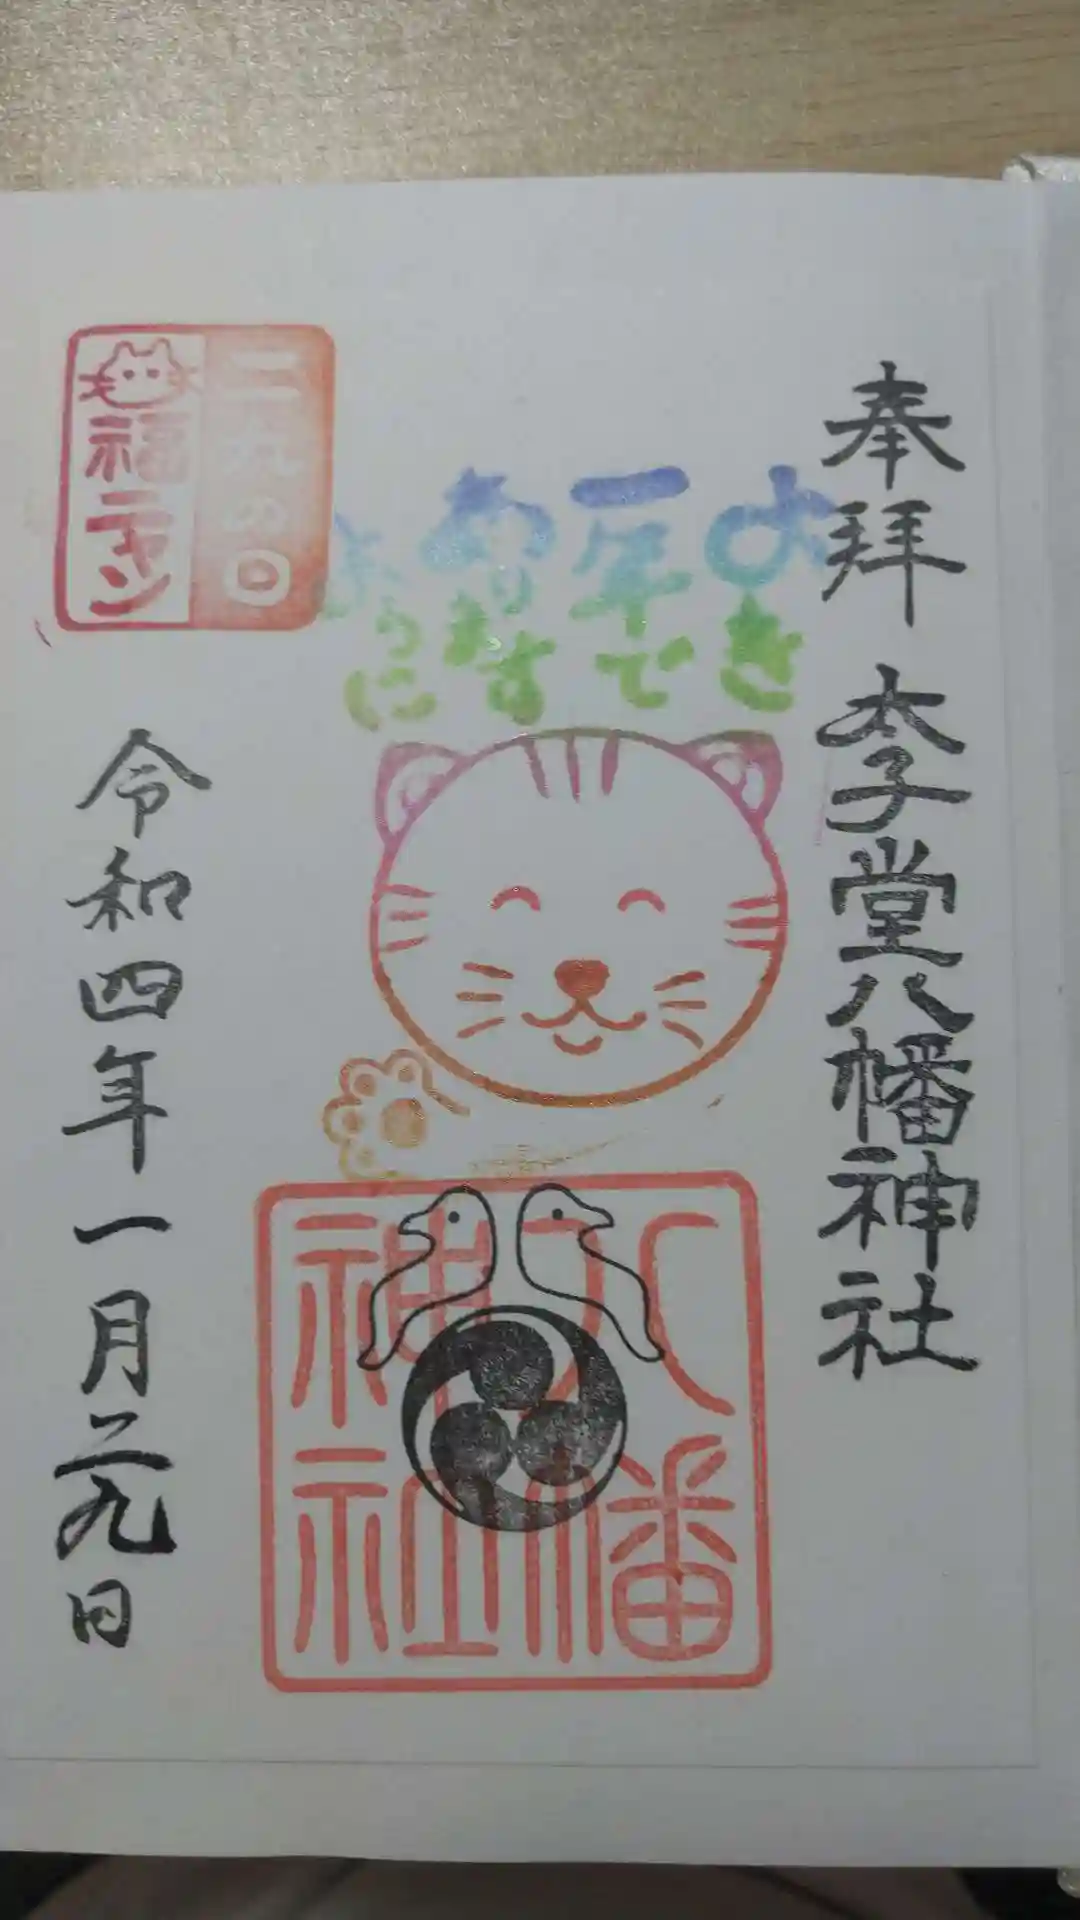 奉拝
太子堂八幡神社
よき
一年で
あり
ます
ように
二九の日
福ニャン
八幡
神社
令和四年一月二九日